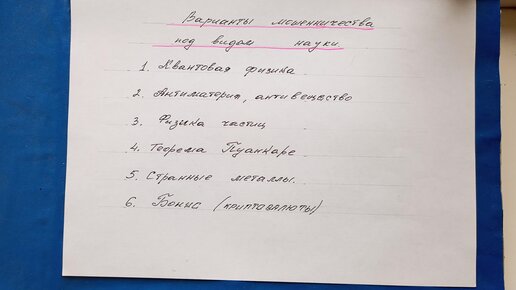 Варианты мошенничества
под видом науки.
1. Квантовая физика
2. Антиматерия, антивещество
3. Физика частиц
4. Теорема Пуанкаре
5. Странные металлы.
6. Бонус (криптовалюты)